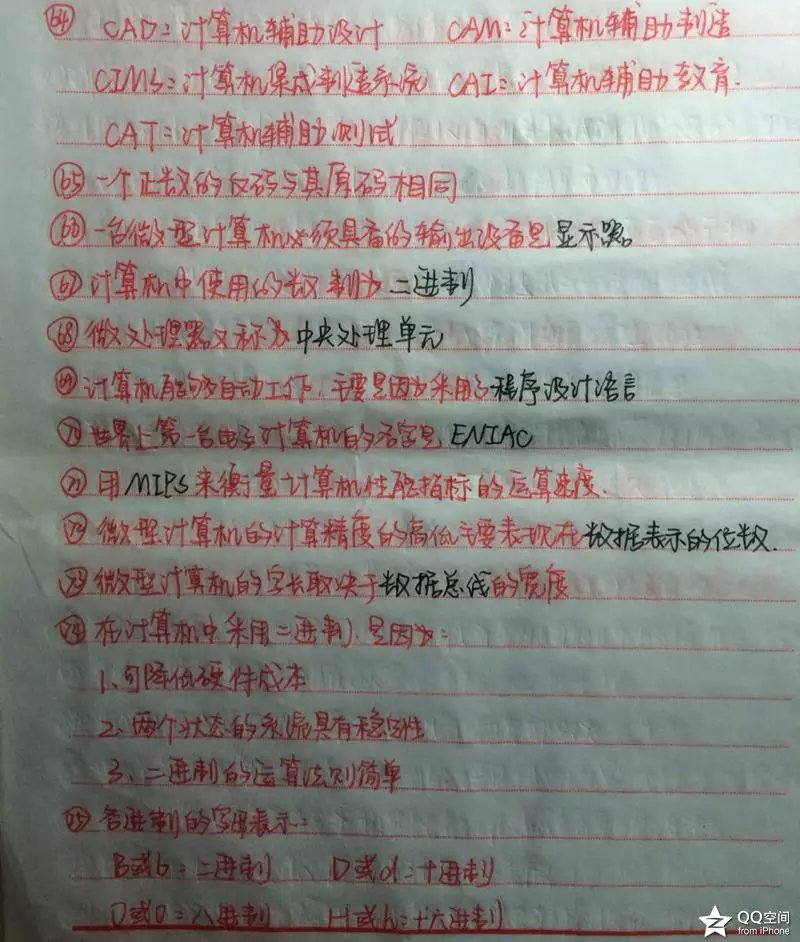 64 CAD：计算机辅助设计 CAM：计算机辅助制造
CIMS：计算机集成制造系统 CAI：计算机辅助教育.
CAT：计算机辅助测试
65 一个正数的反码与其原码相同
66 一台微型计算机必须具备的输出设备是显示器。
67 计算机中使用的数制为二进制
68 微处理器又称为中央处理单元
69 计算机能够自动工作，主要是因为采用了程序设计语言
70 世界上第一台电子计算机的名字是ENIAC
71 用MIPS来衡量计算机性能指标的运算速度.
72 微型计算机的计算精度的高低主要表现在数据表示的位数.
73 微型计算机的字长取决于数据总线的宽度
74 在计算机中采用二进制，是因为：
1、可降低硬件成本
2、两个状态的系统具有稳定性
3、二进制的运算法则简单
75 各进制的字母表示：
B或b：二进制 D或d：十进制
O或o：八进制 H或h：十六进制
QQ空间
from iPhone